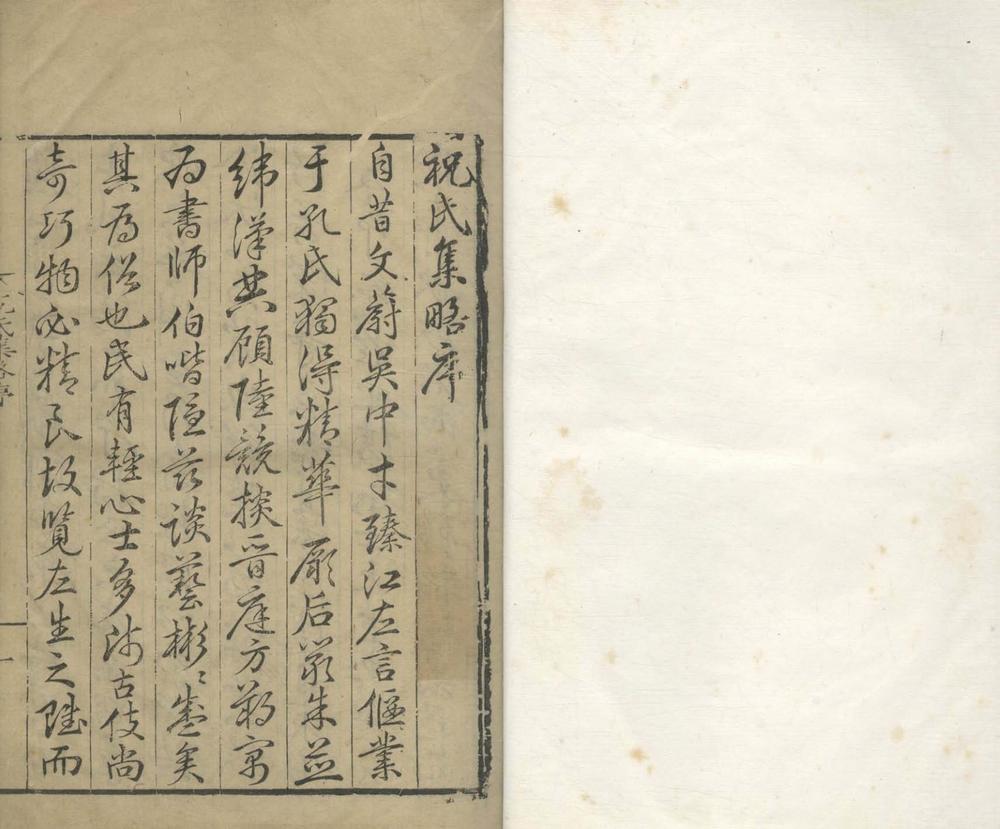 祝氏集略序
自昔文蔚吳中才臻江左言偃業
于孔氏獨得精華厥后嚴朱並
緯漢典顧陸競掞晉庭方蒍寓
為書師伯喈隱茲談藝彬彬盛矣
其為俗也民有輕心士多師古伎尚
奇巧物必精良故覽左生之賦而
祝氏集畧序
一